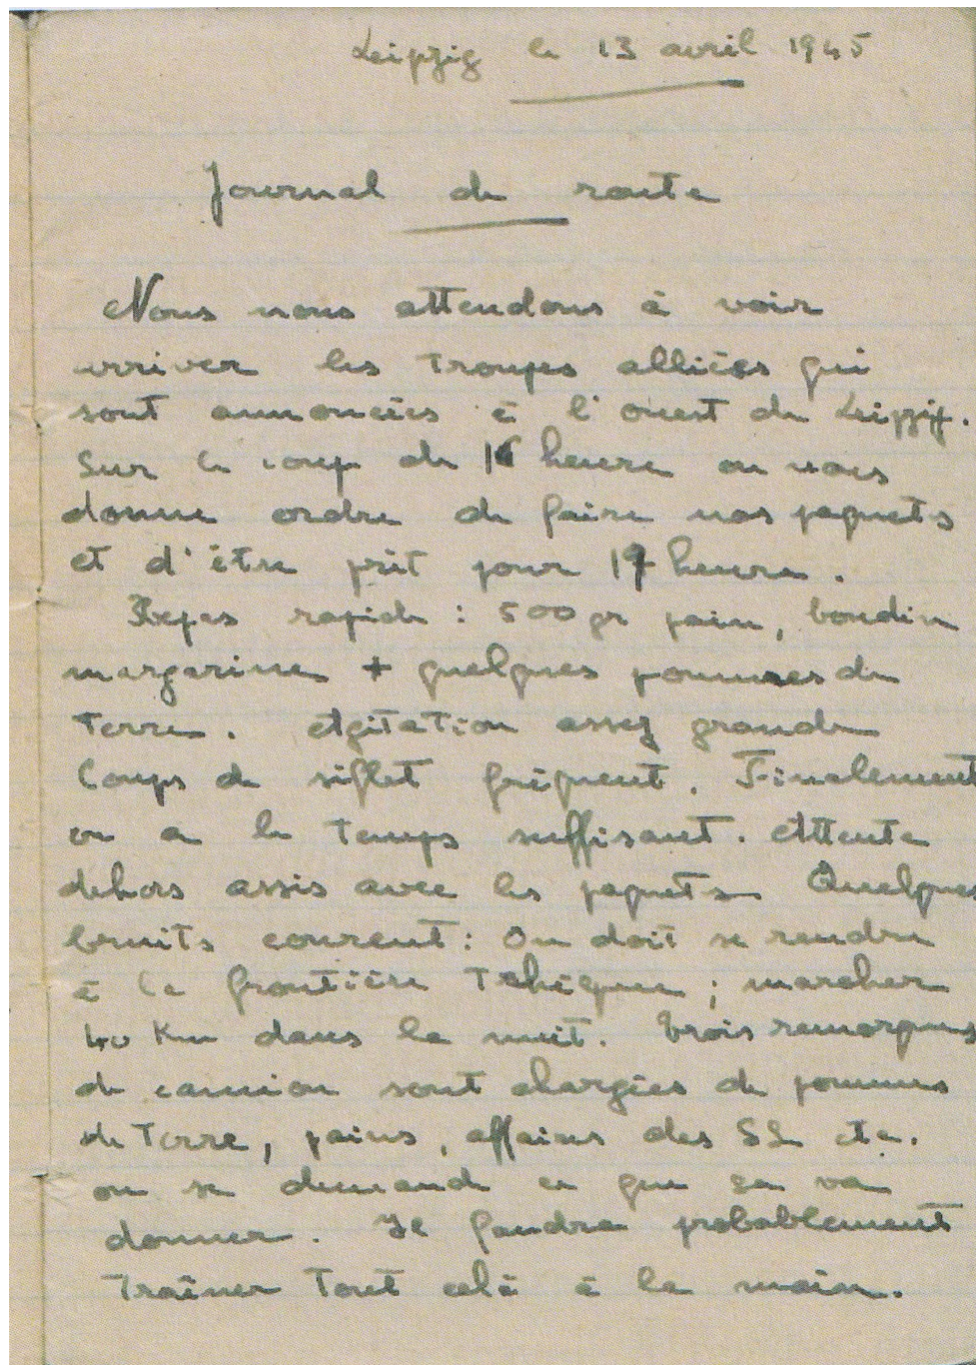 Leipzig le 13 avril 1945
Journal de route
Nous nous attendons à voir
arriver les troupes alliées qui
sont annoncées à l'ouest de Leipzig.
Sur le coup de 16 heure on nous
donne ordre de faire nos paquets
et d'être prêt pour 17 heure.
Repas rapide : 500 gr pain, boudin
margarine + quelques pommes de
terre. Agitation assez grande
Coups de siflet fréquent. Finalement
on a le temps suffisant. Attente
dehors assis avec les paquets. Quelques
bruits courent : On doit se rendre
à la frontière Tchèque ; marcher
40 Km dans la nuit. Trois remorques
de camion sont chargées de pommes
de terre, pains, affaires des SS etc.
on se demande ce que ça va
donner. Il faudra probablement
traîner tout celà à la main.